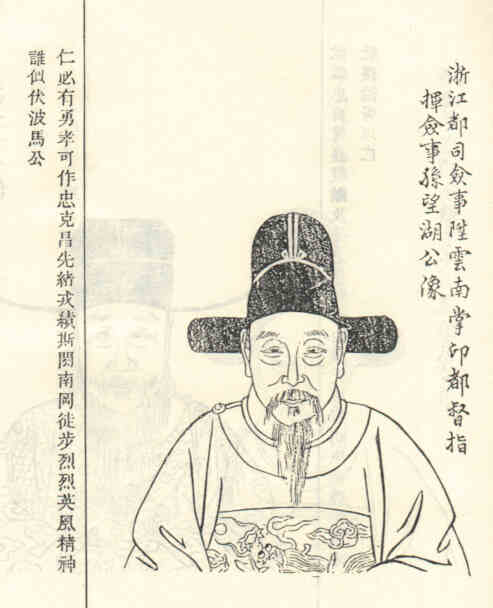 浙江都司僉事陞雲南掌印都督指
揮僉事孫望湖公像
仁必有勇孝可作忠克昌先緒戎績斯閎南岡徒步烈烈英風精神
誰似伏波馬公